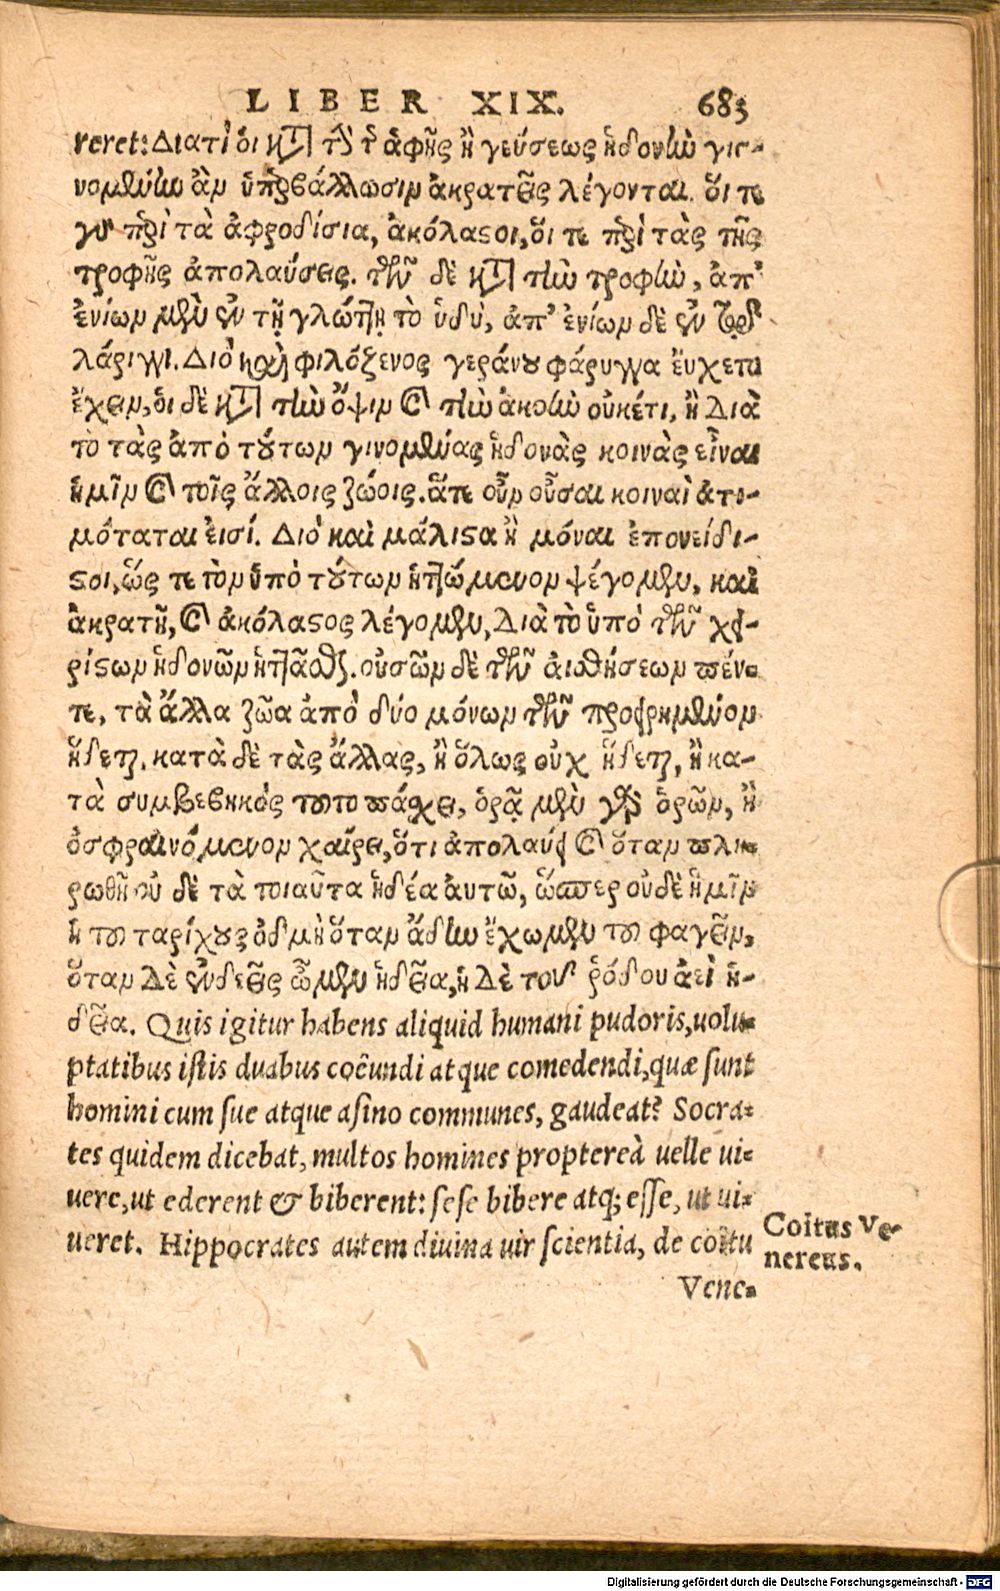 LIBER XIX. 683
reret: Διατί οἱ κατὰ τὴν τῆς ἁφῆς ἢ γεύσεως ἡδονὴν γιγ-
νομένην ἂν ὑπερβάλλωσιν ἀκρατεῖς λέγονται. ὅι τε
γὰρ περὶ τὰ ἀφροδίσια, ἀκόλαστοι, ὅι τε περὶ τὰς τῆς
τροφῆς ἀπολαύσεις. τῶν δὲ κατὰ τὴν τροφὴν, ἀπ'
ἐνίων μὲν ἐν τῇ γλώττῃ τὸ ἡδὺ, ἀπ' ἐνίων δὲ ἐν τῷ
λάριγγι. Διὸ καὶ φιλόξενος γεράνου φάρυγγα ἔυχετο
ἔχειν, ὁι δὲ κατὰ τὴν ὄψιν καὶ τὴν ἀκοὴν οὐκέτι, ἢ Διὰ
το τὰς ἀπὸ τούτων γινομένας ἡδονὰς κοινὰς εἶναι
ἡμῖν καὶ τοῖς ἄλλοις ζώοις. ἅτε οὖν οὖσαι κοιναὶ ἀτι-
μόταται εἰσί. Διὸ καὶ μάλιστα ἢ μόναι ἐπονείδι-
στοι, ὥς τε τὸν ὑπὸ τούτων ἡττώμενον ψέγομεν, καὶ
ἀκρατῆ, καὶ ἀκόλαστος λέγομεν, Διὰ τὸ ὑπὸ τῶν χει-
ρίστων ἡδονῶν ἡττᾶσθαι. οὐσῶν δὲ τῶν αἰσθήσεων πέν-
τε, τὰ ἄλλα ζῶα ἀπὸ δύο μόνων τῶν προειρημένον
ἥδεται. κατὰ δὲ τὰς ἄλλας, ἢ ὅλως οὐχ ἥδεται, ἢ κα-
τὰ συμβεβηκός τοῦτο πάσχει, ὁρᾷ μὲν γὰρ ὁρῶν, ἢ
ὀσφραινόμενον χαίρει, ὅτι ἀπολαύει καὶ ὅταν πλη-
ρωθῆ οὐ δὲ τὰ τοιαῦτα ἡδέα ἀυτῶ, ὥσπερ οὐδὲ ἡμῖν
ἡ του ταρίχους ὀδμὴ ὅταν ἄδην ἔχωμεν του φαγεῖν,
ὅταν Δὲ ἐνδεεῖς ὦμεν ἡδεῖα, ἡ Δὲ τοῦ ῥόδου ἀεὶ ἡ-
δεῖα. Quis igitur habens aliquid humani pudoris, uolu-
ptatibus istis duabus coëundi atque comedendi, quæ sunt
homini cum sue atque asino communes, gaudeat? Socra-
tes quidem dicebat, multos homines proptereà uelle ui-
uere, ut ederent & biberent: sese bibere atq; esse, ut ui-
ueret. Hippocrates autem diuina uir scientia, de coitu
Coitus Ve-
nereus.
Vene-
Digitalisierung gefördert durch die Deutsche Forschungsgemeinschaft - DFG